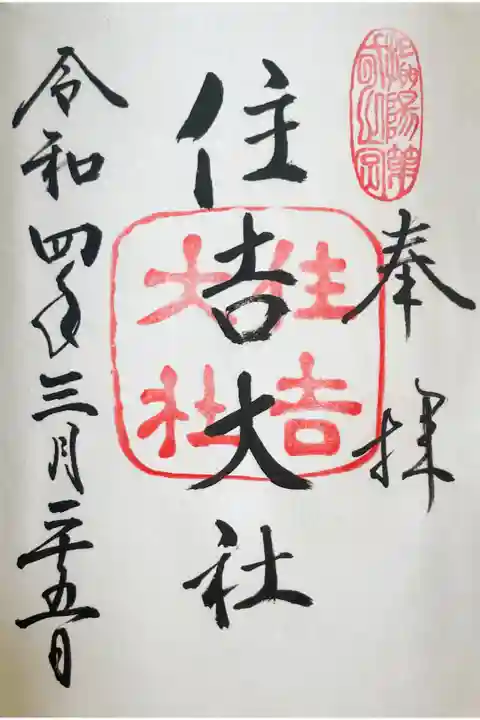 奉拝
住吉大社
住吉
大社
令和四年三月二十五日